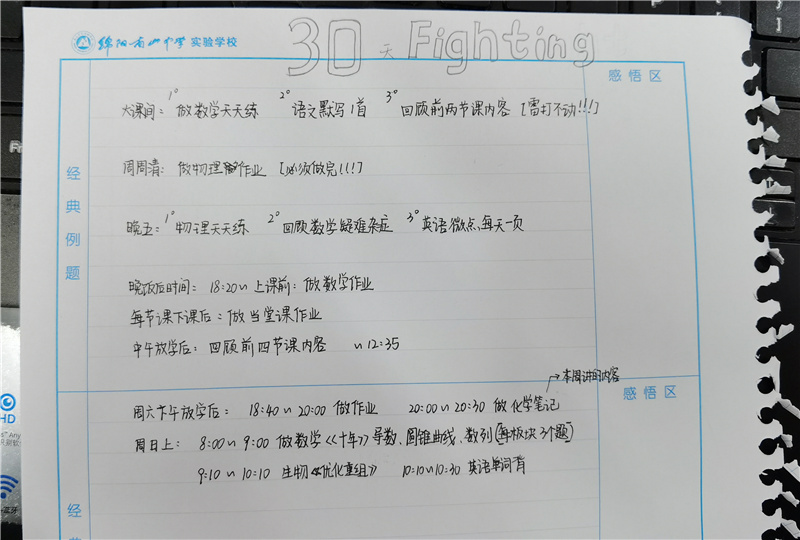 绵阳南山中学实验学校
30天 Fighting
感悟区
大课间：1° 做数学天天练 2° 语文默写1首 3° 回顾前两节课内容 [雷打不动!!!]
周周清：做物理作业 [必须做完!!!]
经典例题
晚五：1° 物理天天练 2° 回顾数学疑难杂症 3° 英语微点,每天一页
晚饭后时间：18:20~上课前：做数学作业
每节课下课后：做当堂课作业
中午放学后：回顾前四节课内容 ~12:35
→本周讲的内容
感悟区
周六下午放学后：18:40~20:00 做作业 20:00~20:30 做化学笔记
周日上：8:00~9:00 做数学《十年》导数、圆锥曲线、数列(每板块3个题)
9:10~10:10 生物《优化重组》 10:10~10:30 英语单词背
经
HD